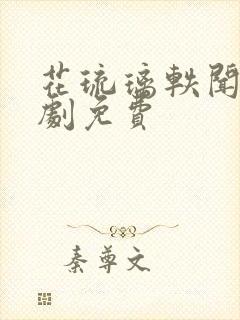 花琉璃軼聞
劇免費
秦尊文